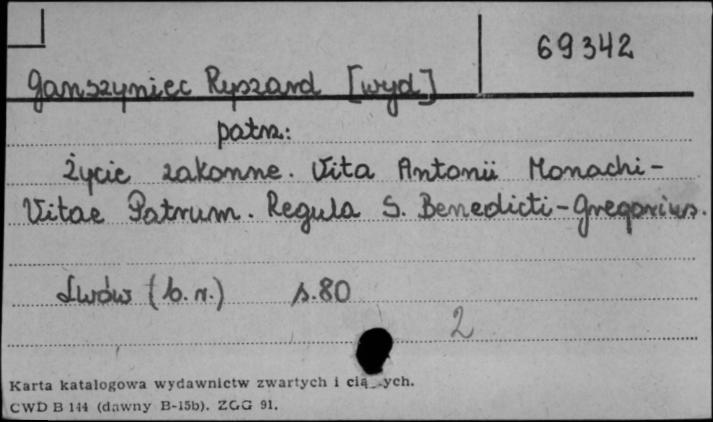 69342
Ganszyniec Ryszard [wyd]
patrz:
Życie zakonne. Vita Antonii Monachi-
Vitae Patrum. Regula S. Benedicti-Gregorius.
Lwów (b.r.) s.80
2
Karta katalogowa wydawnictw zwartych i cią ych.
CWD B 144 (dawny B-15b). ZGG 91.